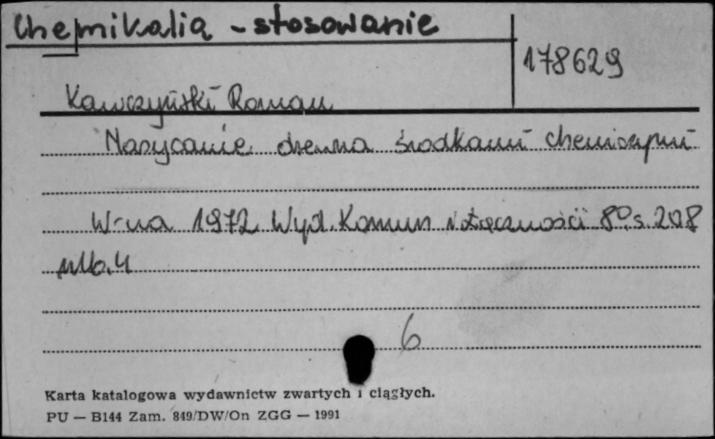 Chemikalia - stosowanie
178629
Kawczyński Roman
Nasycanie drewna środkami chemicznymi
W-wa 1972 Wyd. Komun i Łączności 8° s. 208
nlb. 4
6
Karta katalogowa wydawnictw zwartych i ciągłych.
PU — B144 Zam. 849/DW/On ZGG — 1991